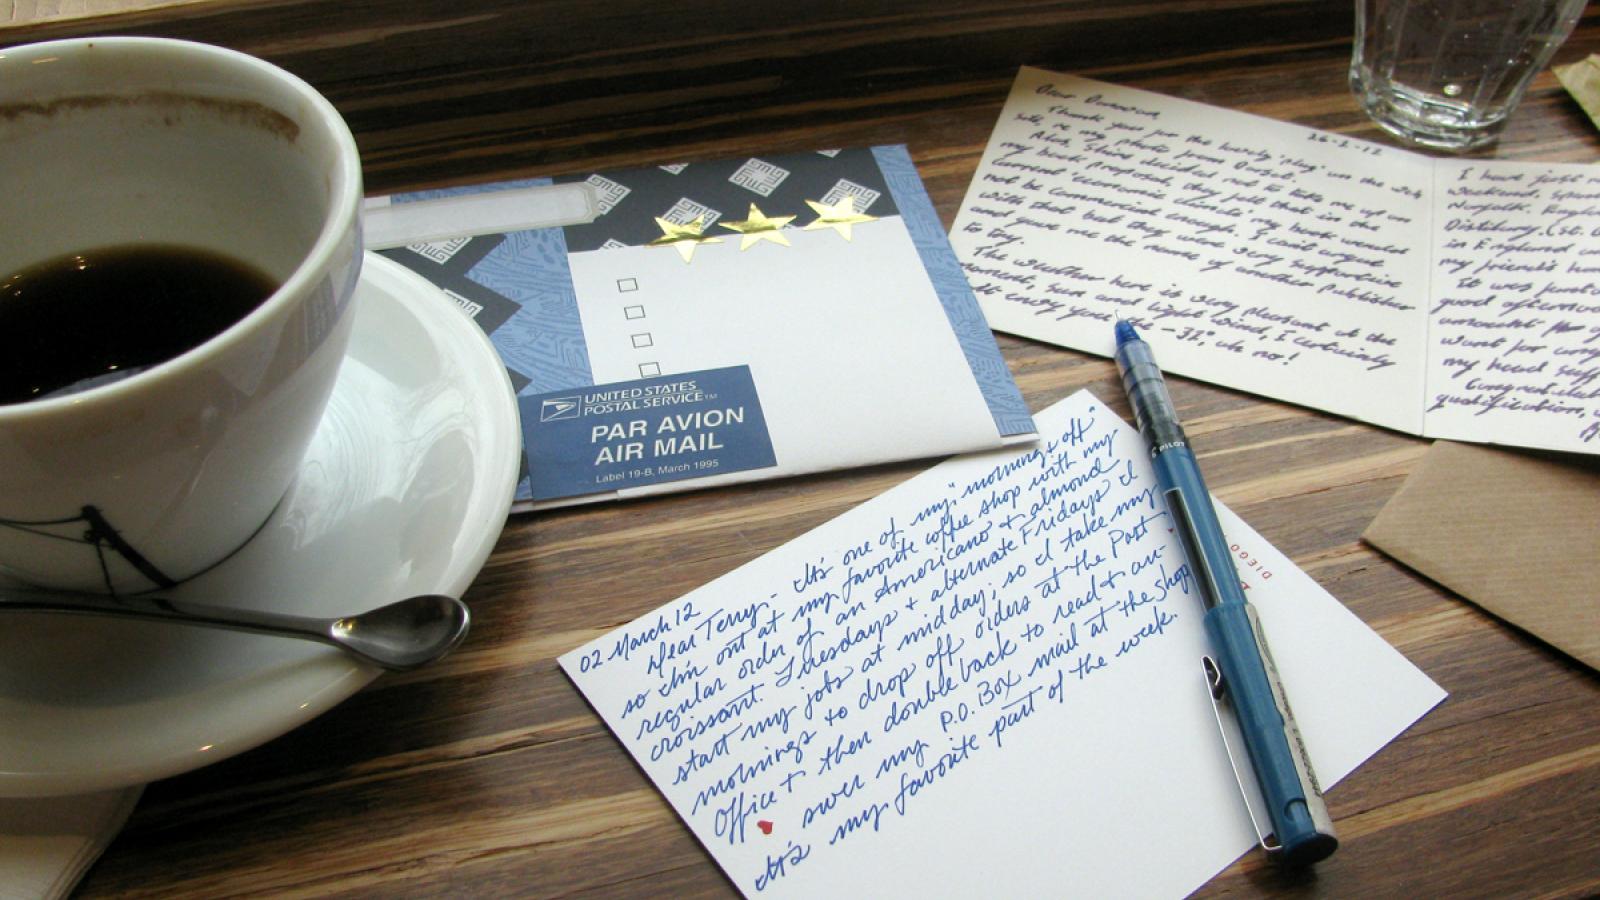 UNITED STATES
POSTAL SERVICE™
PAR AVION
AIR MAIL
Label 19-B, March 1995
26-2-12
Thank you for the lovely 'plug' on the
site, re my photo from Dorset.
Alas, Shire decided not to take me up on
my book proposal, they felt that in the
current 'economic climate' my book would
not be commercial enough. I can't argue
with that but they were very supportive
and gave me the name of another publisher
to try.
The weather here is very pleasant at the
moment, sun and light wind, I certainly
don't envy you the -31°, oh no!
I have just
weekend
Norfolk.
Distillery, (St.
in England
my friend's
It was
good
amount
want for
my head
qualification,
02 March 12
Dear Terry - It's one of my "mornings off"
so I'm out at my favorite coffee shop with my
regular order of an Americano + almond
croissant. Tuesdays + alternate Fridays I
start my jobs at midday; so I take my
mornings to drop off orders at the Post
Office + then double back to read + an-
swer my P.O. Box mail at the shop.
It's my favorite part of the week.
PILOT
DIEGO